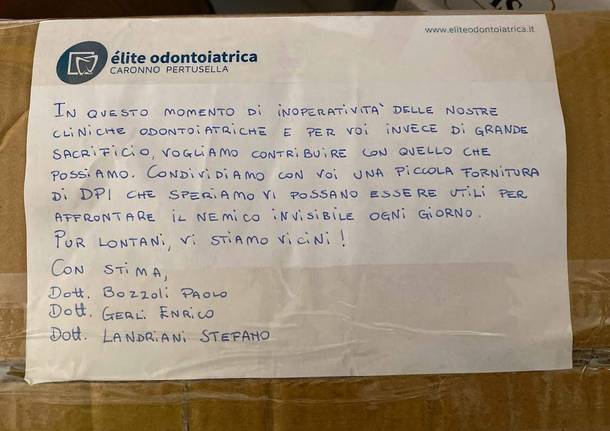 www.eliteodontoiatrica.it
élite odontoiatrica
CARONNO PERTUSELLA
IN QUESTO MOMENTO DI INOPERATIVITA' DELLE NOSTRE
CLINICHE ODONTOIATRICHE E PER VOI INVECE DI GRANDE
SACRIFICIO, VOGLIAMO CONTRIBUIRE CON QUELLO CHE
POSSIAMO. CONDIVIDIAMO CON VOI UNA PICCOLA FORNITURA
DI DPI CHE SPERIAMO VI POSSANO ESSERE UTILI PER
AFFRONTARE IL NEMICO INVISIBILE OGNI GIORNO.
PUR LONTANI, VI STIAMO VICINI!
CON STIMA,
DOTT. BOZZOLI PAOLO
DOTT. GERLI ENRICO
DOTT. LANDRIANI STEFANO